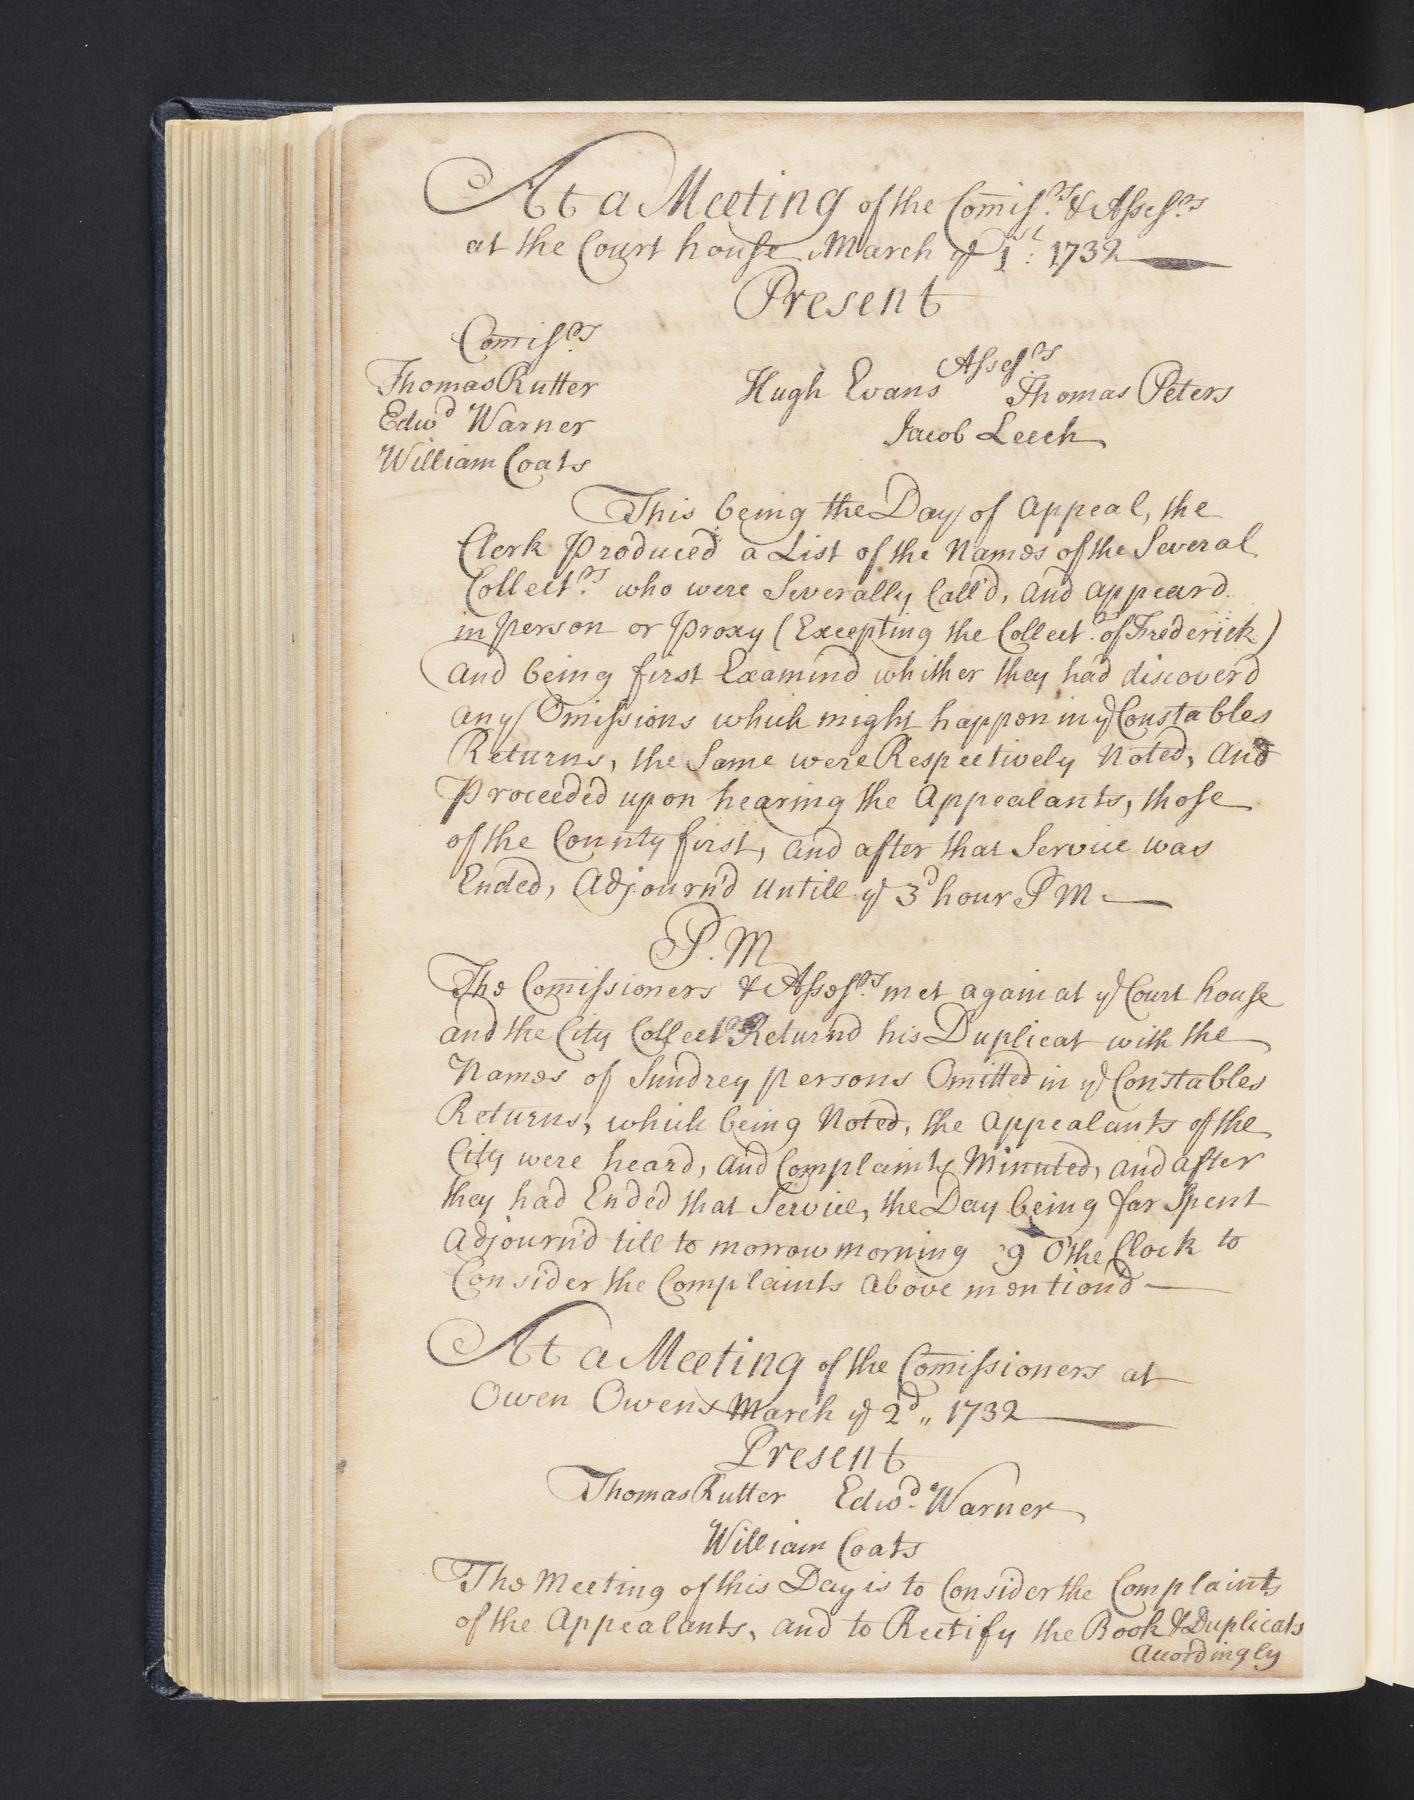 At a Meeting of the Comiss.rs & Assess.rs
at the Court house March ye 1st: 1732
Present
Comiss.rs
Assess.rs
Thomas Rutter
Hugh Evans Thomas Peters
Edwd Warner
Jacob Leech
William Coats
This being the Day of Appeal, the
Clerk Produced a List of the Names of the Several
Collect.rs who were Severally Call'd, and appeard
in person or proxy (Excepting the Collect.r of Frederick)
And being first Examind whither they had discoverd
any Omissions which might happen in ye Constables
Returns, the Same were Respectively Noted, and
Proceeded upon hearing the Appealants, those
of the County first, and after that Service was
Ended, Adjourn'd Untill ye 3d hour P M
P. M
The Comissioners & Assess.rs met again at ye Court house
and the City Collect.r Returnd his Duplicat with the
Names of Sundrey persons Omitted in ye Constables
Returns, which being Noted, the Appealants of the
City were heard, and Complaints Minuted, and after
they had Ended that Service, the Day being far Spent
Adjourn'd till to morrow morning 9 O'the Clock to
Consider the Complaints above mention'd
At a Meeting of the Comissioners at
Owen Owens March ye 2d,, 1732
Present
Thomas Rutter Edwd. Warner
William Coats
The Meeting of this Day is to Consider the Complaints
of the Appealants, and to Rectify the Book & Duplicats
Accordingly